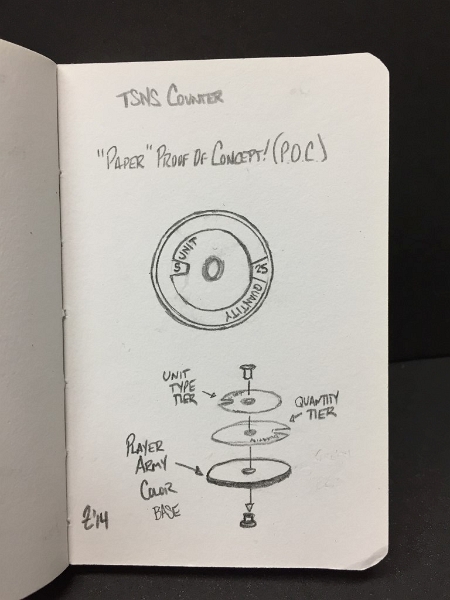 TSNS COUNTER
"PAPER" PROOF OF CONCEPT! (P.O.C)
UNIT
S
25
QUANTITY
UNIT
TYPE
TIER
QUANTITY
TIER
PLAYER
ARMY
COLOR
BASE